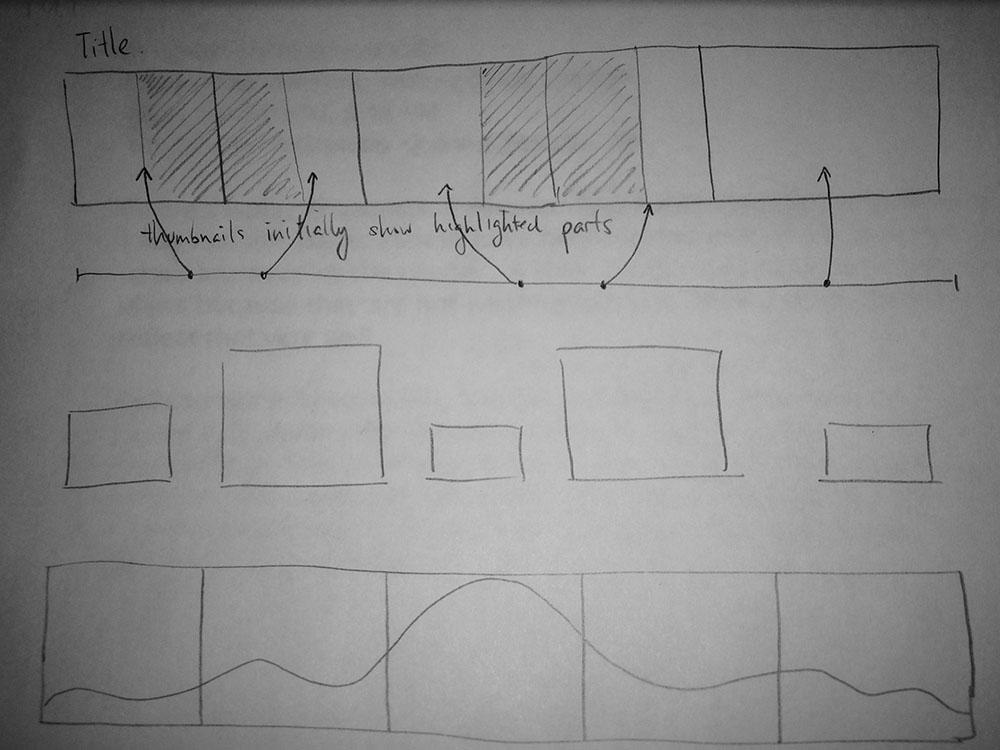 Title.
thumbnails initially show highlighted parts